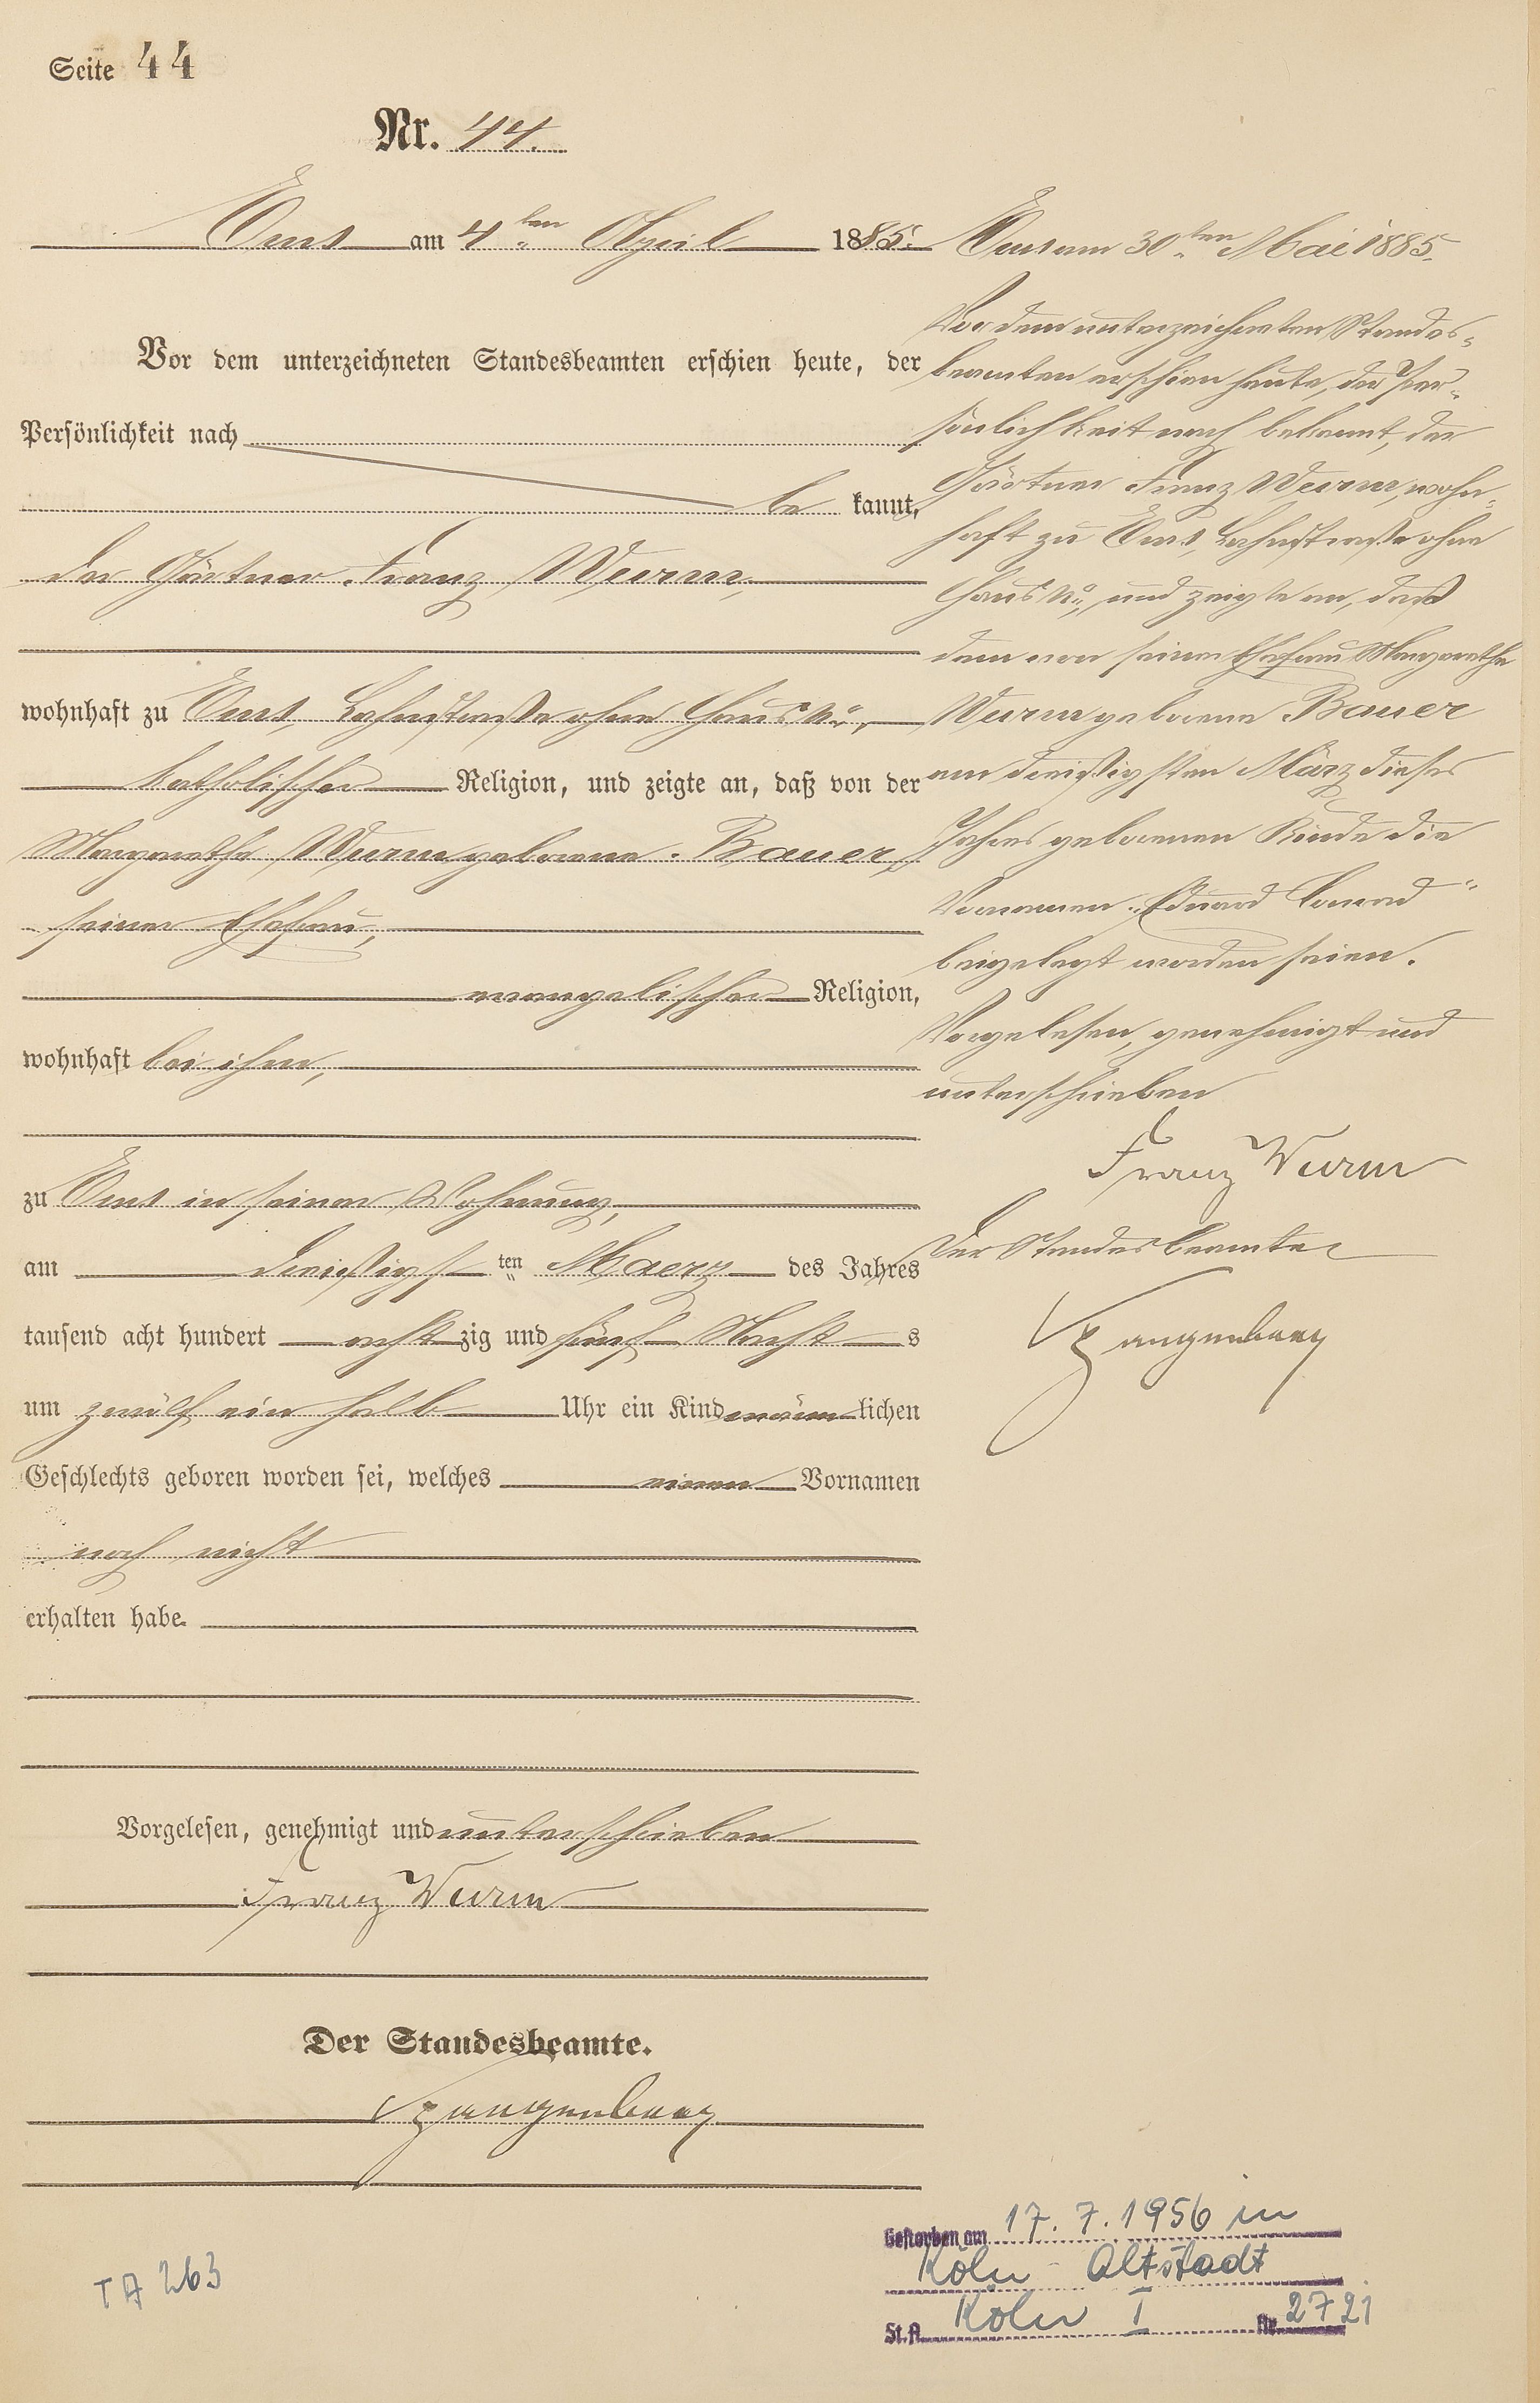 Seite 44
Nr. 44.
Ems am 4ten April 1885.
Vor dem unterzeichneten Standesbeamten erschien heute, der
Persönlichkeit nach
be kannt,
der Gärtner Franz Wurm,
wohnhaft zu Ems, Lahnstraße ohne Haus No.,
katholischer Religion, und zeigte an, daß von der
Margarethe Wurm geborene Bauer,
seiner Ehefrau,
evangelischer Religion,
wohnhaft bei ihm,
zu Ems in seiner Wohnung,
am dreißigsten ten Maerz des Jahres
tausend acht hundert acht zig und fünf Nacht s
um zwölf ein halb Uhr ein Kind männ lichen
Geschlechts geboren worden sei, welches einen Vornamen
noch nicht
erhalten habe.
Vorgelesen, genehmigt und unterschrieben
Franz Wurm
Der Standesbeamte.
Spangenberg
Ems am 30ten Mai 1885.
Vor dem unterzeichneten Standes-
beamten erschien heute, der Per-
sönlichkeit nach bekannt, der
Gärtner Franz Wurm, wohn-
haft zu Ems, Lahnstraße ohne
Haus No., und zeigte an, daß
dem von seiner Ehefrau Margarethe
Wurm geborene Bauer
am dreißigsten März dieses
Jahres geborenen Kinde die
Vornamen „Eduard Conrad"
beigelegt worden seien.
Vorgelesen, genehmigt und
unterschrieben
Franz Wurm
Der Standesbeamte
Spangenberg
Gestorben am 17. 7. 1956 in
Köln - Altstadt
St. A. Köln I Nr. 2721
TA 263